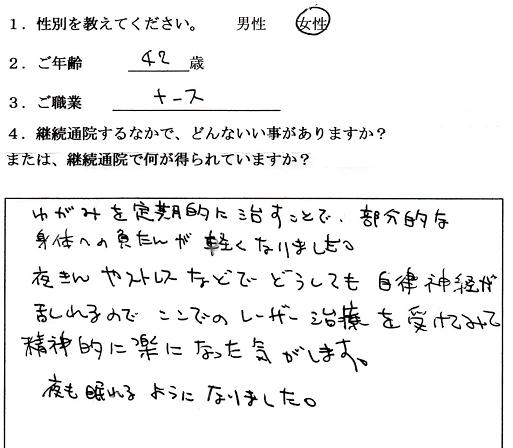 1．性別を教えてください。 男性 女性
2．ご年齢 42 歳
3．ご職業 ナース
4．継続通院するなかで、どんないい事がありますか？
または、継続通院で何が得られていますか？
ゆがみを定期的に治すことで、部分的な
身体への負たんが軽くなりました。
夜きんやストレスなどでどうしても自律神経が
乱れるので ここでのレーザー治療を受けてみて
精神的に楽になった気がします。
夜も眠れるようになりました。